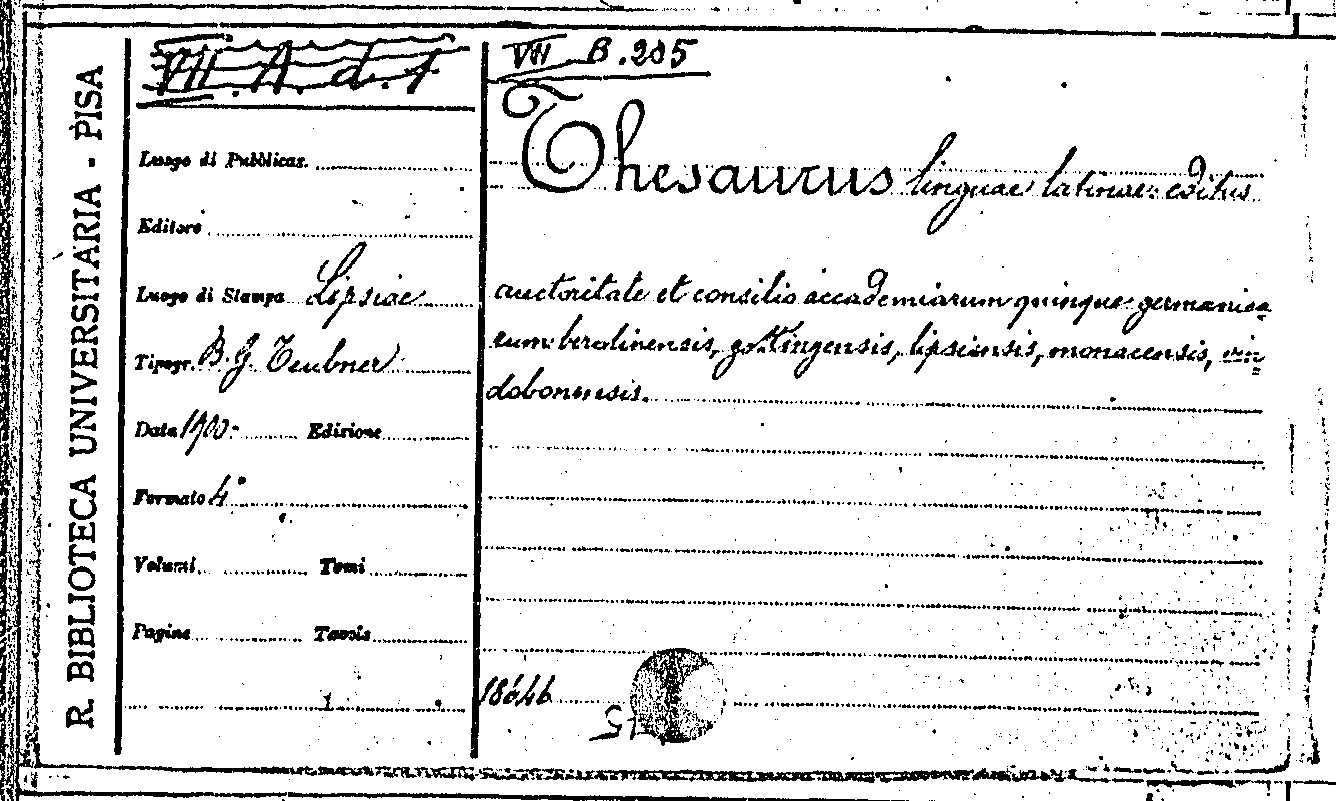 R. BIBLIOTECA UNIVERSITARIA - PISA
VII. A. d. 1
VII B. 205
Luogo di Pubblicaz.
Thesaurus linguae latinae: editus
Editore
Luogo di Stampa Lipsiae
auctoritate et consilio accademiarum quinque germanica
Tipogr. B. G. Teubner
rum: berolinensis, gottingensis, lipsiensis, monacensis, vin
dobonensis.
Data 1900- Edizione
Formato 4°
Volumi Tomi
Pagine Tavole